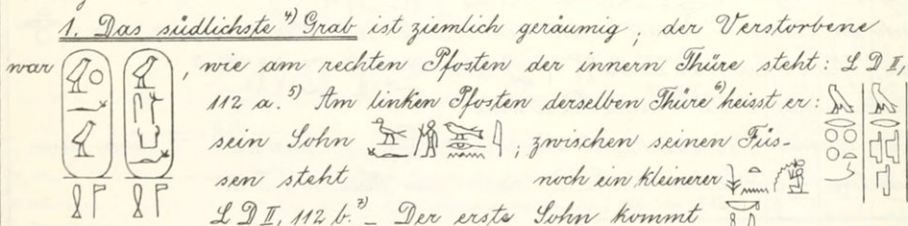 1. Das südlichste ⁴⁾ Grab ist ziemlich geräumig; der Verstorbene
war , wie am rechten Pfosten der innern Thüre steht: L D II,
112 a.⁵⁾ Am linken Pfosten derselben Thüre⁶⁾ heisst er:
sein Sohn ; zwischen seinen Füs-
sen steht noch ein kleinerer
L D II, 112 b.⁷⁾ – Der erste Sohn kommt